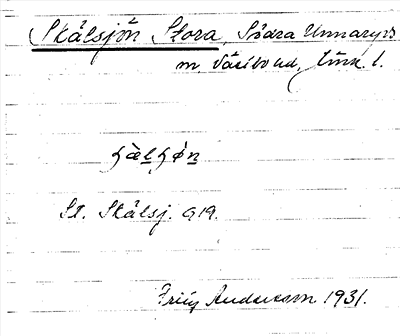 Skälsjön Stora, Södra Unnaryds
sn, Västbo hd, Jönk. l.
St. Skälsj. G19.
Frity Andersson 1931.